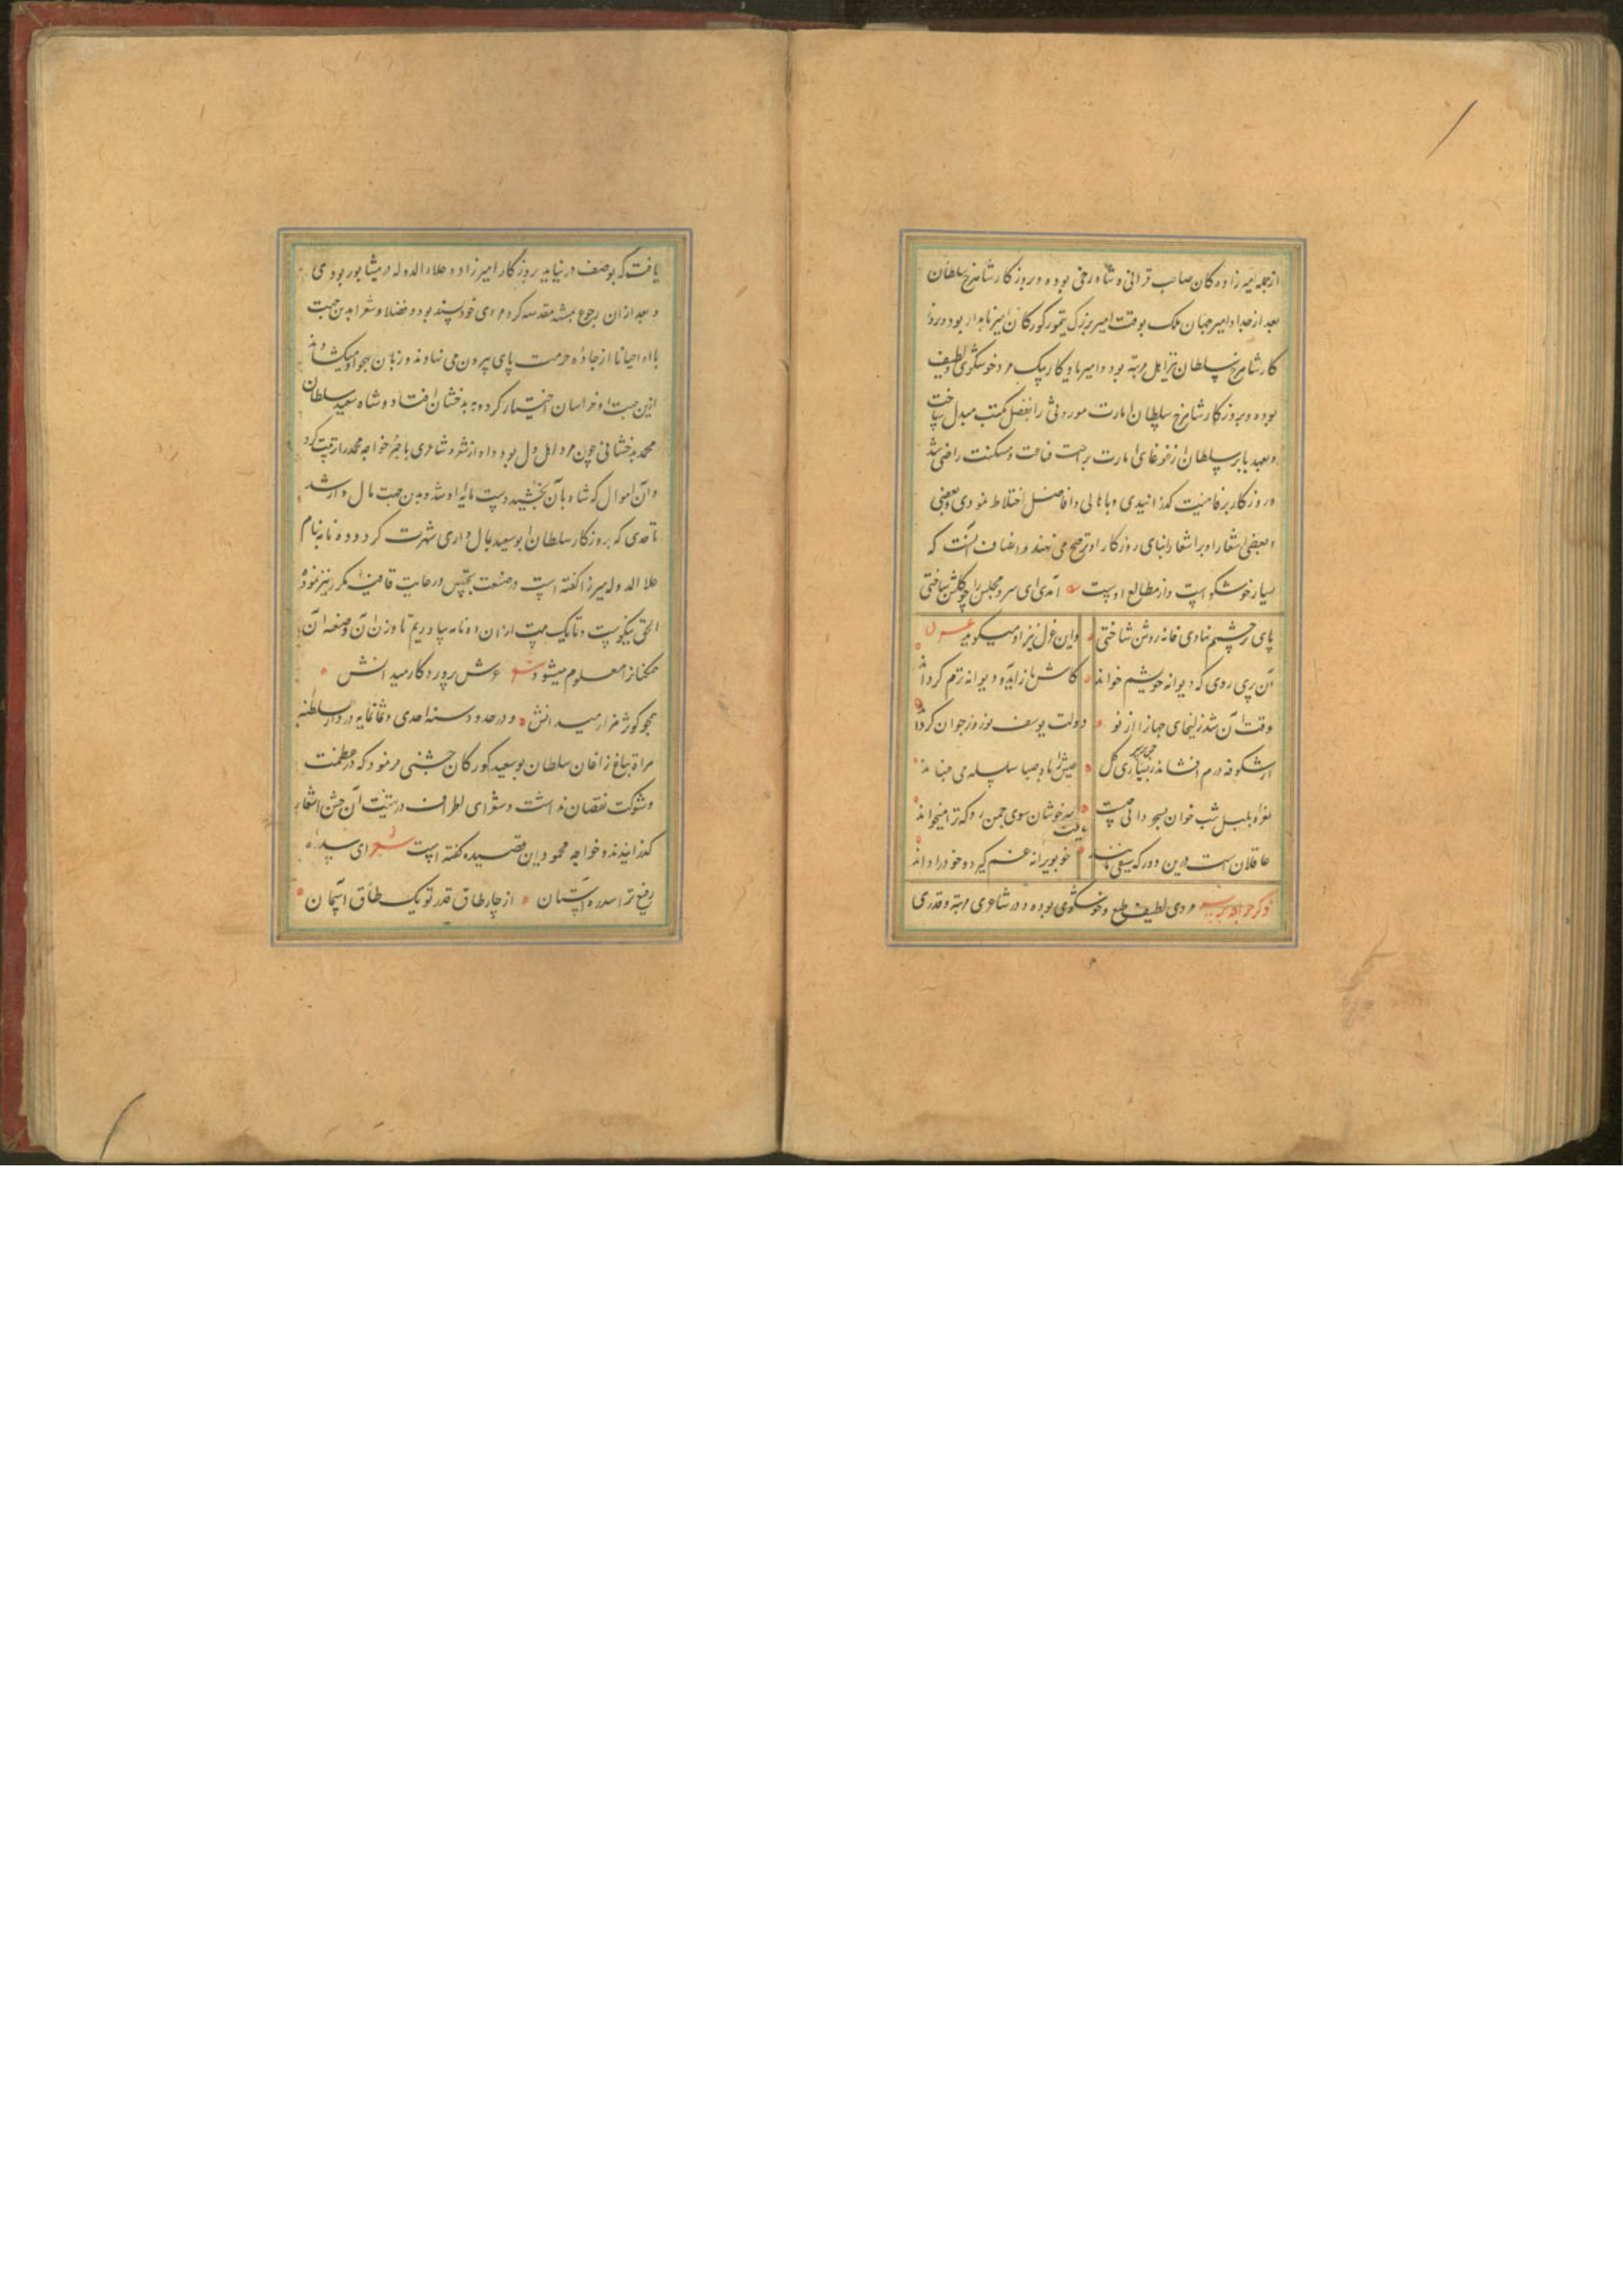 ازجمله میرزاده کان صاحب قرانی و شاه رخی بوده و روزکار شاهرخ سلطان
بعد از جداد امیر جهان ملک بوقت امیر بزرک تیمور کورکان امیر نامدار بود و روز
کار شاهرخ سلطان نیز اهل مرتبه بود و امیر یادکار بیک مرد خوشکوی و لطیف
بوده و بروزکار شاهرخ سلطان امارت موروثی را بفضل مکتسب مبدل ساخت
و بعهد بابر سلطان از غوغای امارت براحت قناعت و مسکنت راضی شد
و روزکار برفاهیت کذرانیدی و با اهالی و افاضل اختلاط نمودی و بعضی
و بعضی اشعار او بر اشعار ابنای روزکار او ترجیح می نهند و انصاف آنست که
بسیار خوشکو است و از مطالع اوست آمدی ای سرو مجلس را چو کلشن ساختی
پای بر چشم نهادی خانه روشن ساختی واین غزل نیز او میکوید
آن پری روی که دیوانه خویشم خواند کاش باز آید و دیوانه ترم کرداند
وقت آن شد زلیخای جهانرا از نو دولت یوسف نوروز جوان کرداند
از شکوفه درم افشاند کل عیش را باد صبا سلسله می جنباند
نعره بلبل شب خوان بسحر دانی چیست که خوشان سوی چمن رو که ترا میخواند
عاقلان است درین دور که باقیست خو بویرانه غم کیرد و خود را داند
ذکر خواجه مردی لطیف طبع و خوشکوی بوده و در شاعری مرتبه و قدری
یافت که بوصف در نیاید بروزکار امیرزاده علاء الدوله در نیشابور بودی
و بعد از ان رجوع بمشهد مقدسه کرد مردی خود پسند بود و فضلا و شعرا بدین جهت
با او احیانا از جادهٔ حرمت پای بیرون می نهادند و زبان بهجو او میکشادند
ازین جهت او خراسان اختیار کرد و به بدخشان افتاد و شاه سعید سلطان
محمد بدخشانی چون مرد اهل دل بود و او از شعر و شاعری باخبر خواجه محمود را تربیت کرد
و آن اموال که شاه بآن بخشید دست مایه او شد و بدین جهت مال دار شد
تا حدی که بروزکار سلطان ابو سعید بمال داری شهرت کرد و ده نامه بنام
علا الدوله میرزا کفته است در صنعت تجنیس و رعایت قافیه مکرر نیز نموده
الحق نیکوست و تا یک بیت از ان ده نامه بیاوریم تا وزن آن وصنعه آن
همکنانرا معلوم میشود شعر عرش پروردکار میدانش
همچو کوثر هزار میدانش و در حدود سنه احدی و ثمانمایه در دار السلطنه
هراة بباغ زاغان سلطان بو سعید کورکان جشنی فرمود که در عظمت
وشوکت نقصان نداشت و شعرای اطراف در تهنیت آن جشن اشعار
کذرانیدند و خواجه محمود این قصیده کفته است شعر ای
رفیع تر از سدره آستان از چار طاق قدر تو یک طاق آسمان